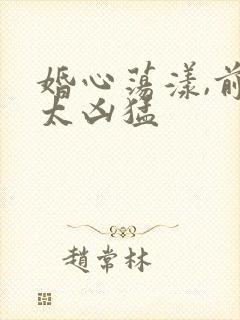 婚心荡漾,前
太凶猛
趙常林